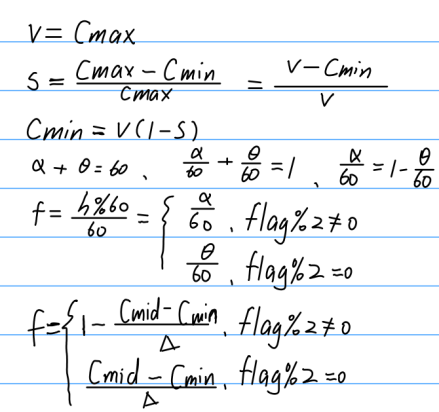 V = Cmax
S = (Cmax - Cmin) / Cmax = (V - Cmin) / V
Cmin = V(1-S)
α + θ = 60 、 α/60 + θ/60 = 1 , α/60 = 1 - θ/60
f = (h%60) / 60 = { α/60 , flag%2≠0
θ/60 , flag%2=0
f = { 1 - (Cmid - Cmin) / Δ , flag%2≠0
(Cmid - Cmin) / Δ , flag%2=0